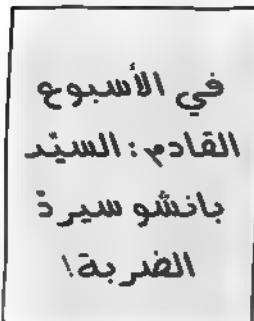 في الأسبوع
القادم: السيّد
بانشو سيردّ
الضربة!